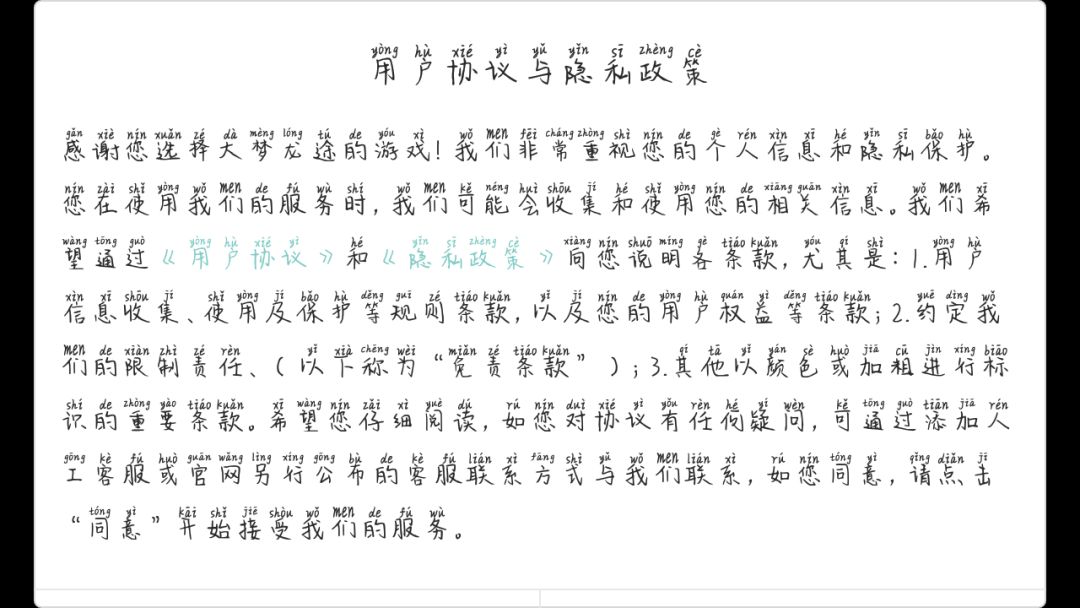 yòng hù xié yì yǔ yǐn sī zhèng cè
用户协议与隐私政策
gǎn xiè nín xuǎn zé dà mèng lóng tú de yóu xì wǒ men fēi cháng zhòng shì nín de gè rén xìn xī hé yǐn sī bǎo hù
感谢您选择大梦龙途的游戏！我们非常重视您的个人信息和隐私保护。
nín zài shǐ yòng wǒ men de fú wù shí wǒ men kě néng huì shōu jí hé shǐ yòng nín de xiāng guān xìn xī wǒ men xī
您在使用我们的服务时，我们可能会收集和使用您的相关信息。我们希
wàng tōng guò yòng hù xié yì hé yǐn sī zhèng cè xiàng nín shuō míng gè tiáo kuǎn yóu qí shì yòng hù
望通过《用户协议》和《隐私政策》向您说明各条款，尤其是：1.用户
xìn xī shōu jí shǐ yòng jí bǎo hù děng guī zé tiáo kuǎn yǐ jí nín de yòng hù quán yì děng tiáo kuǎn yuē dìng wǒ
信息收集、使用及保护等规则条款，以及您的用户权益等条款；2.约定我
men de xiàn zhì zé rèn yǐ xià chēng wèi miǎn zé tiáo kuǎn qí tā yǐ yán sè huò jiā cū jìn xíng biāo
们的限制责任、（以下称为“免责条款”）；3.其他以颜色或加粗进行标
shí de zhòng yào tiáo kuǎn xī wàng nín zǎi xì yuè dú rú nín duì xié yì yǒu rèn hé yí wèn kě tōng guò tiān jiā rén
识的重要条款。希望您仔细阅读，如您对协议有任何疑问，可通过添加人
gōng kè fú huò guān wǎng lìng xíng gōng bù de kè fú lián xì fāng shì yǔ wǒ men lián xì rú nín tóng yì qǐng diǎn jī
工客服或官网另行公布的客服联系方式与我们联系，如您同意，请点击
tóng yì kāi shǐ jiē shòu wǒ men de fú wù
“同意”开始接受我们的服务。